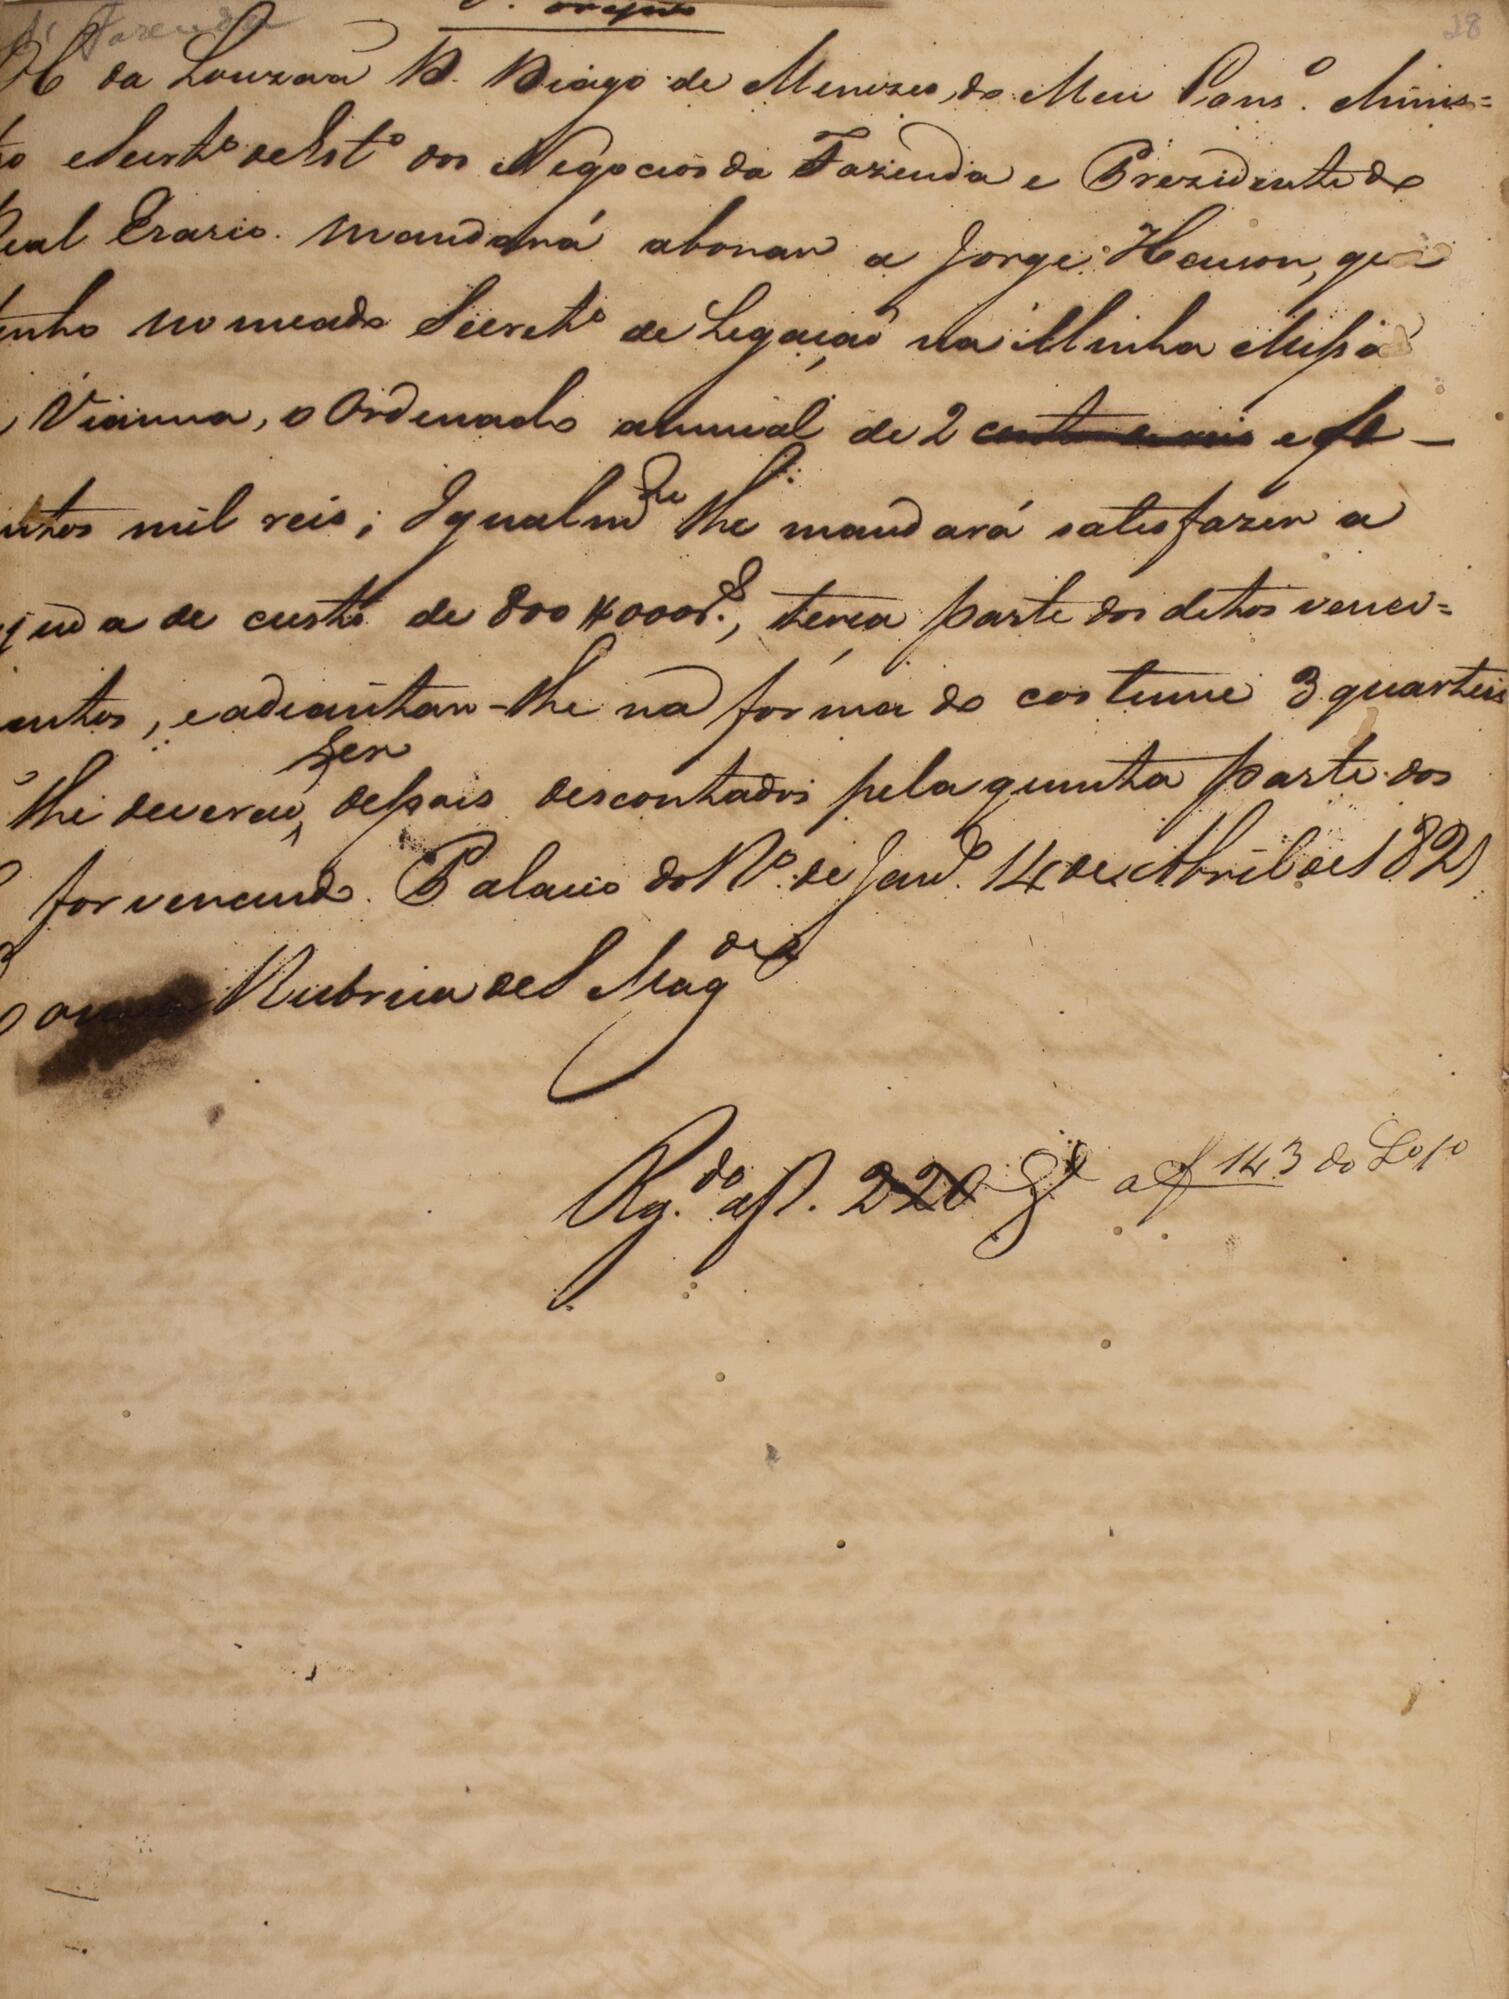 Fazenda
28
da Louzaã D. Diogo de Menezes, do Meu Cons.º Minis=
e Secrt.º de Est.º dos Negocios da Fazenda e Prezidente do
Real Erario. mandará abonar a Jorge
tenho nomeado Secret.º de Legaçaõ na Minha Missa
Vianna, o Ordenado annual de 2 contos de reis e
ntos mil reis; Igualm.te lhe mandará satisfazer a
ajuda de custo de 800$000r.s, terça parte dos ditos venci=
entos, e adiantar-lhe na fórma do costume 3 quarteis
ser
lhe deveraõ depois descontados pela quinta parte dos
for vencendo. Palacio do R.º de Jan.º 14 de Abril de 1821
Rubrica de S Mag.de
Rg.do a f. 220 a f 143 do Lo 1º